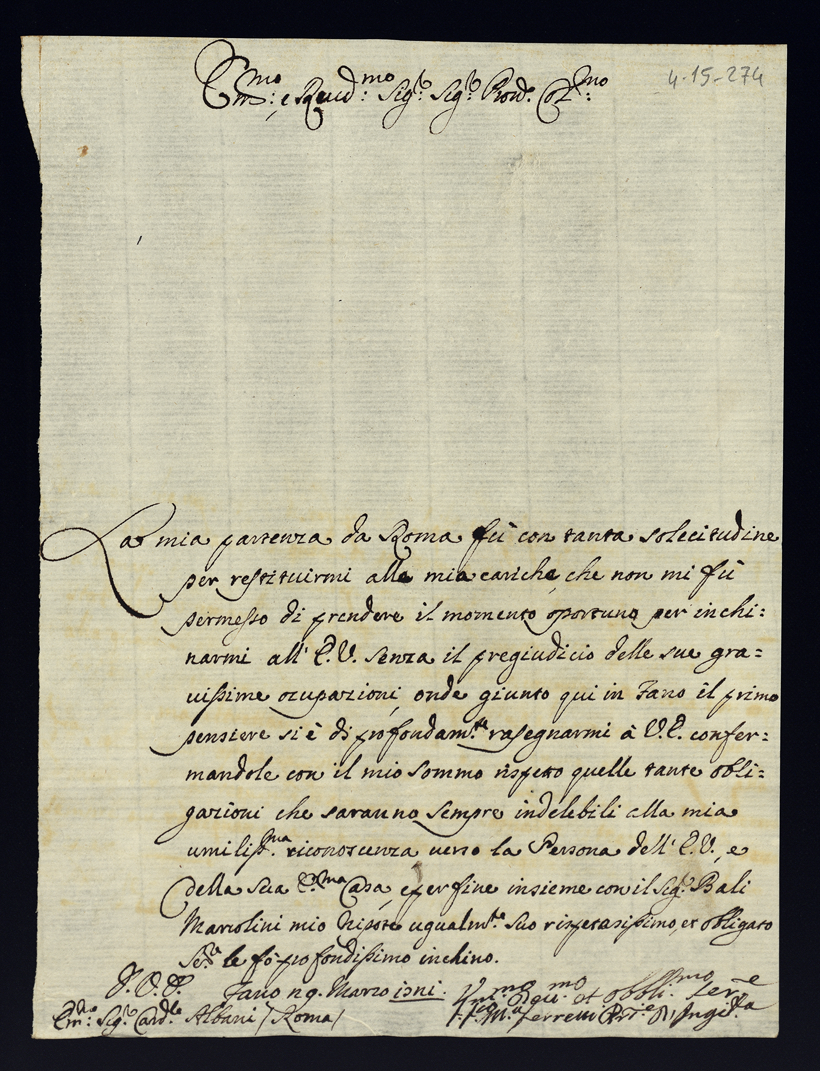 Em:mo e Reud:mo Sig:r Sig:r Prod:e Col:mo
4-15-274
La mia partenza da Roma fù con tanta solecitudine
per restituirmi alle mia cariche, che non mi fù
permesso di prendere il momento oportuno per inchi:
narmi all' E.V. senza il pregiudicio delle sue gra=
uissime ocupazioni, onde giunto qui in Fano il primo
pensiere si è di profondam:te rasegnarmi à V.E. confer=
mandole con il mio sommo rispetto quelle tante obli=
gazioni che sarauno sempre indelebili alla mia
umiliss:ma riconoscenza uerso la Persona dell' E.V., e
della sua E:ma Casa, e per fine insieme con il Sig:r Bali
Marcolini mio Nipote ugualm:te suo rispetasissimo, et obligato
Se:re le fò profondissimo inchino.
Fano n 9. Marzo
Em:mo Sig:r Card:le Albani / Roma /
et obbli:mo Ser:e
Ferretti